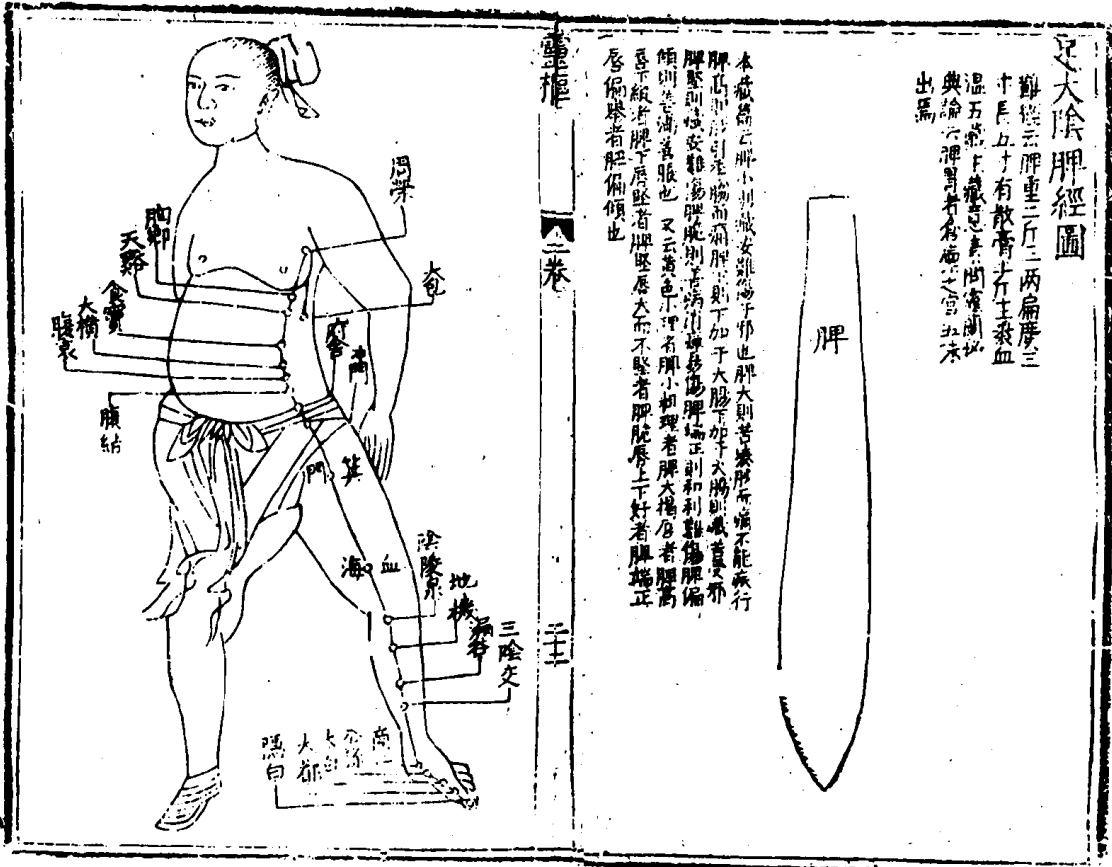 足太陰脾經圖
難經云脾重二斤三两扁廣三
寸長五寸有散膏半斤主裹血
溫五藏主藏意素問靈蘭祕
典論云脾胃者倉廩之官五味
出焉
脾
本藏篇云脾小則藏安難傷于邪也脾大則苦湊䏚而痛不能疾行
脾高則䏚引季脇而痛脾下則下加于大腸下加于大腸則藏苦受邪
脾堅則藏安難傷脾脆則善病消癉易傷脾端正則和利難傷脾偏
傾則善滿善脹也 又云黃色小理者脾小粗理者脾大揭唇者脾高
唇下縱者脾下唇堅者脾堅唇大而不堅者脾脆唇上下好者脾端正
唇偏舉者脾偏傾也
靈樞
二卷
二十二
周榮
大包
胸鄉
天谿
食竇
大橫
腹哀
腹結
府舍
冲門
箕門
血海
陰陵泉
地機
漏谷
三陰交
商丘
公孫
太白
大都
隱白